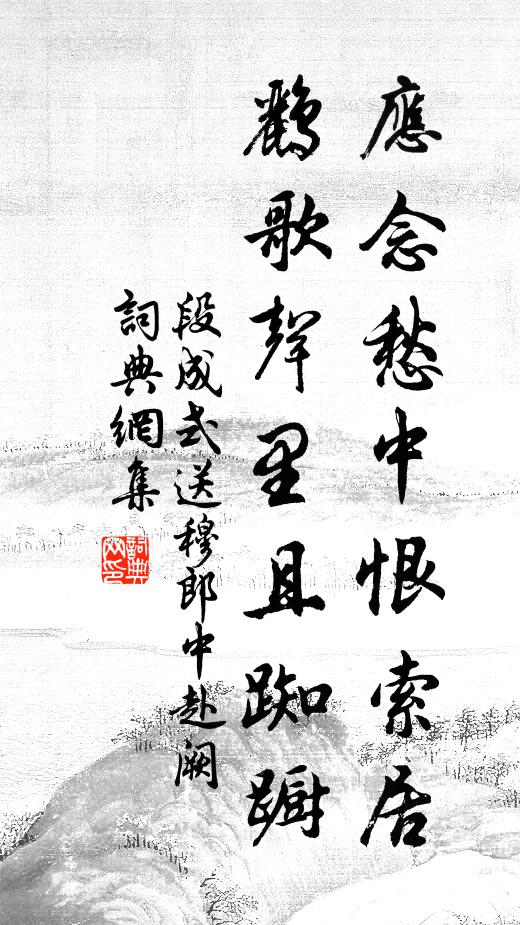 應念愁中恨索居
鸝歌聲里且踟躕
段成式送穆郎中赴闕
詞典網集
詞典網印